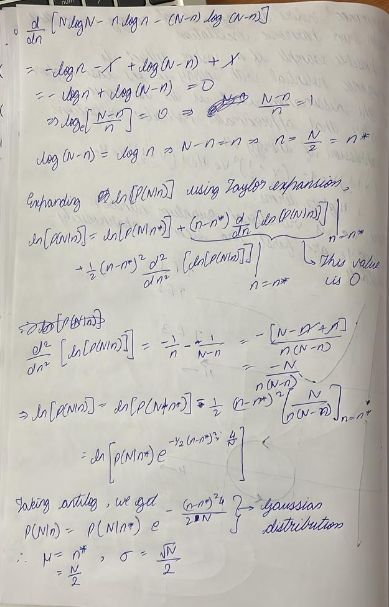 d/dn [N log N - n log n - (N-n) log (N-n)]
= -log n - 1 + log(N-n) + 1
= - log n + log(N-n) = 0
⇒ log_e [N-n/n] = 0 ⇒ N-n/n = 1
log(N-n) = log n ⇒ N-n = n ⇒ n = N/2 = n*
Expanding ln[P(N|n)] using Taylor expansion,
ln[P(N|n)] = ln[P(N|n*)] + (n-n*) d/dn [ln(P(N|n))] |n=n*
+ 1/2 (n-n*)² d²/dn² [ln(P(N|n))] |n=n*
↳ This value is 0
d²/dn² [ln(P(N|n))] = -1/n - 1/N-n = -[N-n+n]/n(N-n)
= -N/n(N-n)
⇒ ln[P(N|n)] = ln[P(N|n*)] - 1/2 (n-n*)² [N/n(N-n)]n=n*
= ln [P(N|n*) e^-1/2 (n-n*)² 4/N]
Taking antilog, we get
P(N|n) = P(N|n*) e^-(n-n*)²4/2N } → Gaussian distribution
∴ μ = n* = N/2 , σ = √N/2